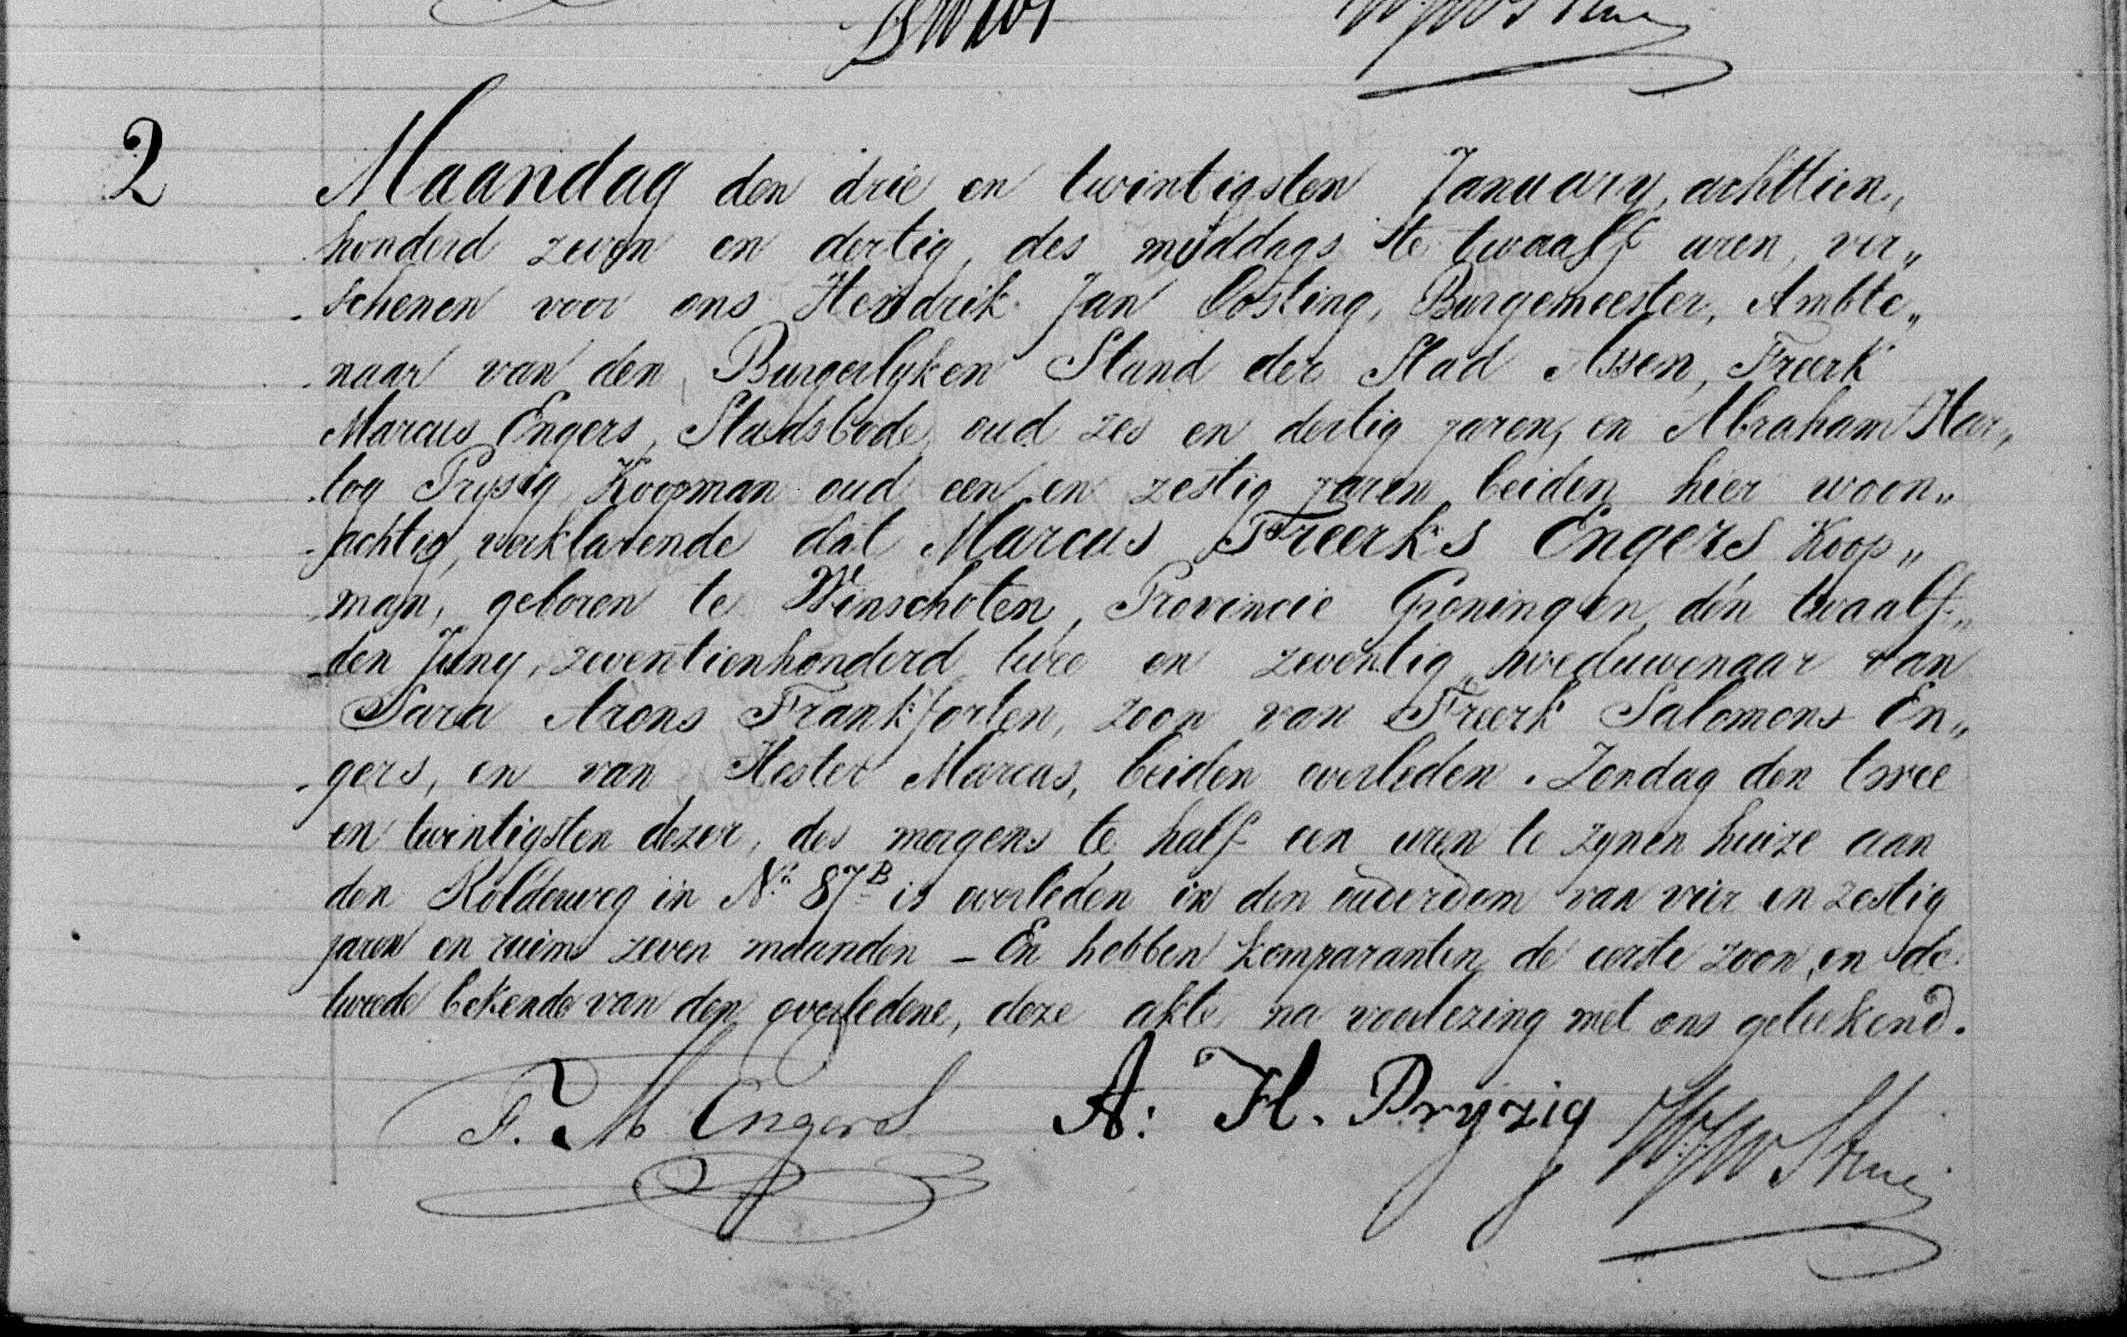 2
Maandag den drie en twintigsten January, achttien„
honderd zeven en dertig, des middags te twaalf uren, ver„
schenen voor ons Hendrik Jan Oosting, Burgemeester, Ambte„
naar van den Burgerlyken Stand der Stad Assen, Freerk
Marcus Engers, Stadsbode, oud zes en dertig jaren, en Abraham Har„
tog Prysig, Koopman oud een en zestig jaren, beiden hier woon„
achtig, verklarende dat Marcus Freerks Engers Koop„
man, geboren te Winschoten, Provincie Groningen, den twaalf„
den Juny, zeventienhonderd twee en zeventig, weduwenaar van
Sara Arons Frankforten, zoon van Freerk Salomons En„
gers, en van Hester Marcus, beiden overleden. Zondag den twee
en twintigsten dezer, des morgens te half een uren te zynen huize aan
den Rolderweg in No. 87B is overleden in den ouderdom van vier en zestig
jaren en ruim zeven maanden - En hebben komparanten, de eerste zoon, en de
twede bekende van den overledene, deze akte na voorlezing met ons geteekend.
F. M Engers A: H. Pryzig